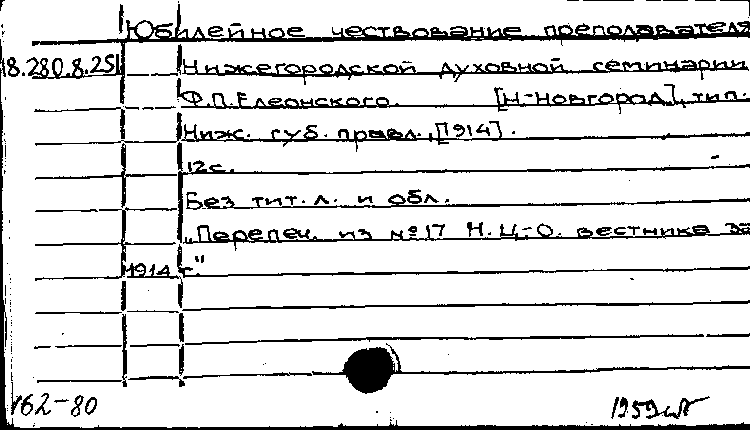 Юбилейное чествование преподавателя
18.280.8.251 Нижегородской духовной семинарии
Ф.П.Елеонского. [Н-Новгород], тип.
Ниж. губ. правл., [1914].
12с.
Без тит. л. и обл.
„Перепеч. из №17 Н.Ц.-О. вестника за
1914 г."
162-80